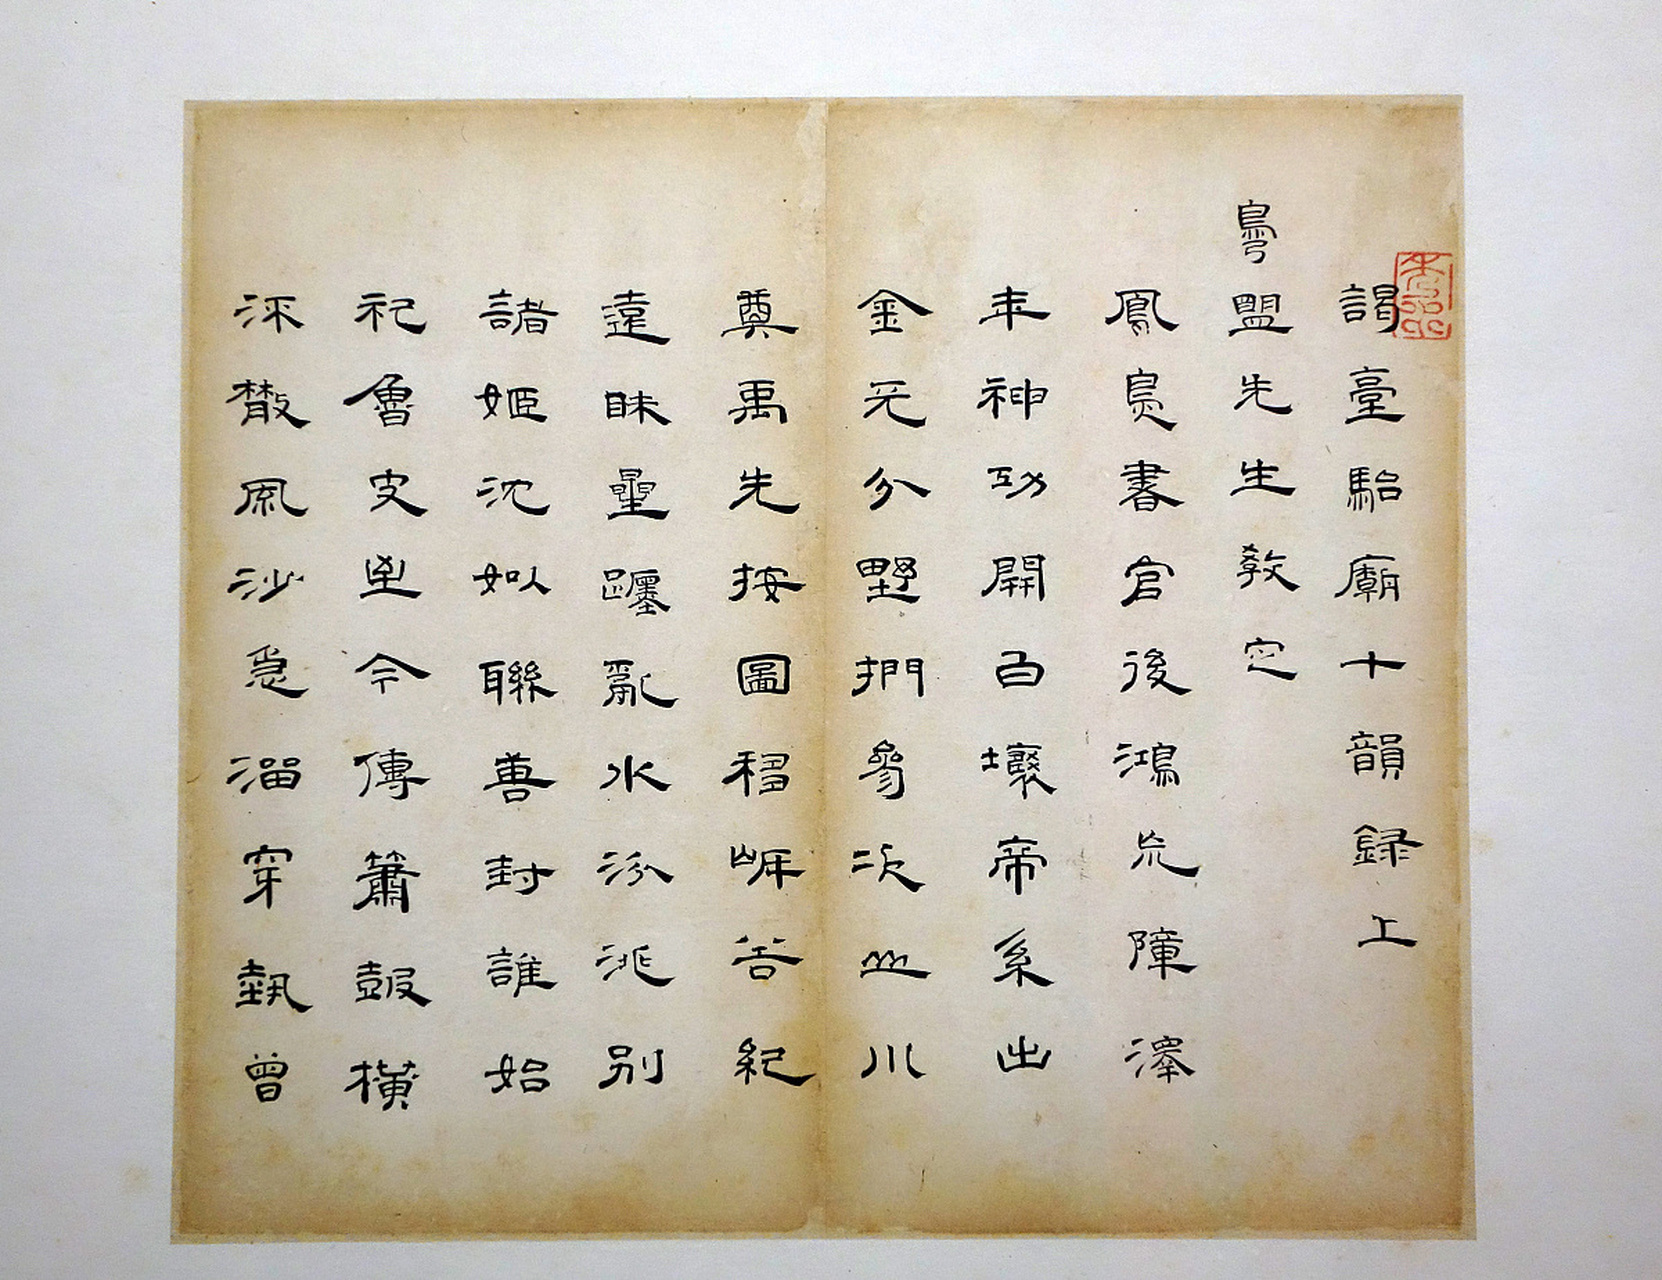 謁臺駘廟十韻録上
鳧盟先生教定
鳳鳥書官後鴻荒障澤
年神功開白壤帝系出
金天分野捫參次山川
奠禹先按圖移岍谷紀
遠昧星躔亂水汾洮別
諸姬沈姒聯善封誰始
祀魯史至今傳簫鼓橫
散風沙急溜穿執曾